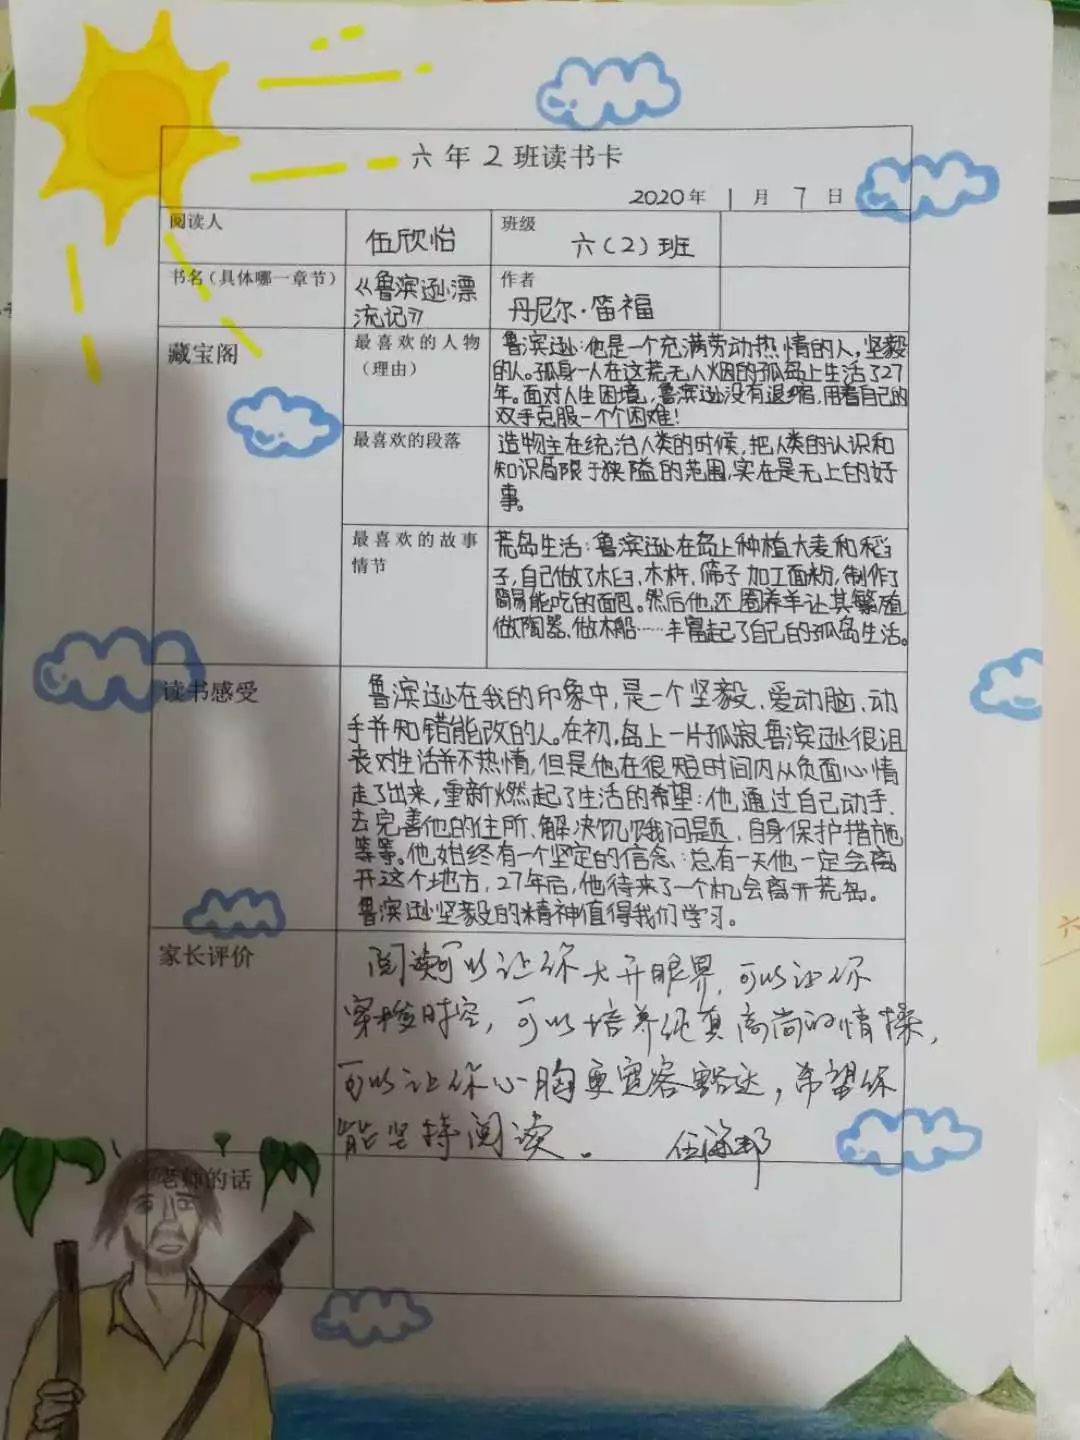 六年2班读书卡
2020年1月7日
阅读人
伍欣怡
班级
六(2)班
书名(具体哪一章节)
《鲁滨逊漂
流记》
作者
丹尼尔·笛福
藏宝阁
最喜欢的人物
(理由)
鲁滨逊:他是一个充满劳动热情的人,坚毅
的人。孤身一人在这荒无人烟的孤岛上生活了27
年。面对人生困境,鲁滨逊没有退缩,用着自己的
双手克服一个个困难!
最喜欢的段落
造物主在统治人类的时候,把人类的认识和
知识局限于狭隘的范围,实在是无上的好
事。
最喜欢的故事
情节
荒岛生活:鲁滨逊在岛上种植大麦和稻
子,自己做了木臼、木杵、筛子加工面粉,制作了
简易能吃的面包。然后他还圈养羊让其繁殖
做陶器、做木船……丰富起了自己的孤岛生活。
读书感受
鲁滨逊在我的印象中,是一个坚毅、爱动脑、动
手并知错能改的人。在初,岛上一片孤寂,鲁滨逊很沮
丧对生活并不热情,但是他在很短时间内从负面心情
走了出来,重新燃起了生活的希望:他通过自己动手、
去完善他的住所、解决饥饿问题、自身保护措施
等等。他始终有一个坚定的信念:总有一天他一定会离
开这个地方,27年后,他待来了一个机会离开荒岛。
鲁滨逊坚毅的精神值得我们学习。
家长评价
阅读可以让你大开眼界,可以让你
穿梭时空,可以培养纯真高尚的情操,
可以让你心胸更宽容豁达,希望你
能坚持阅读。 伍
老师的话